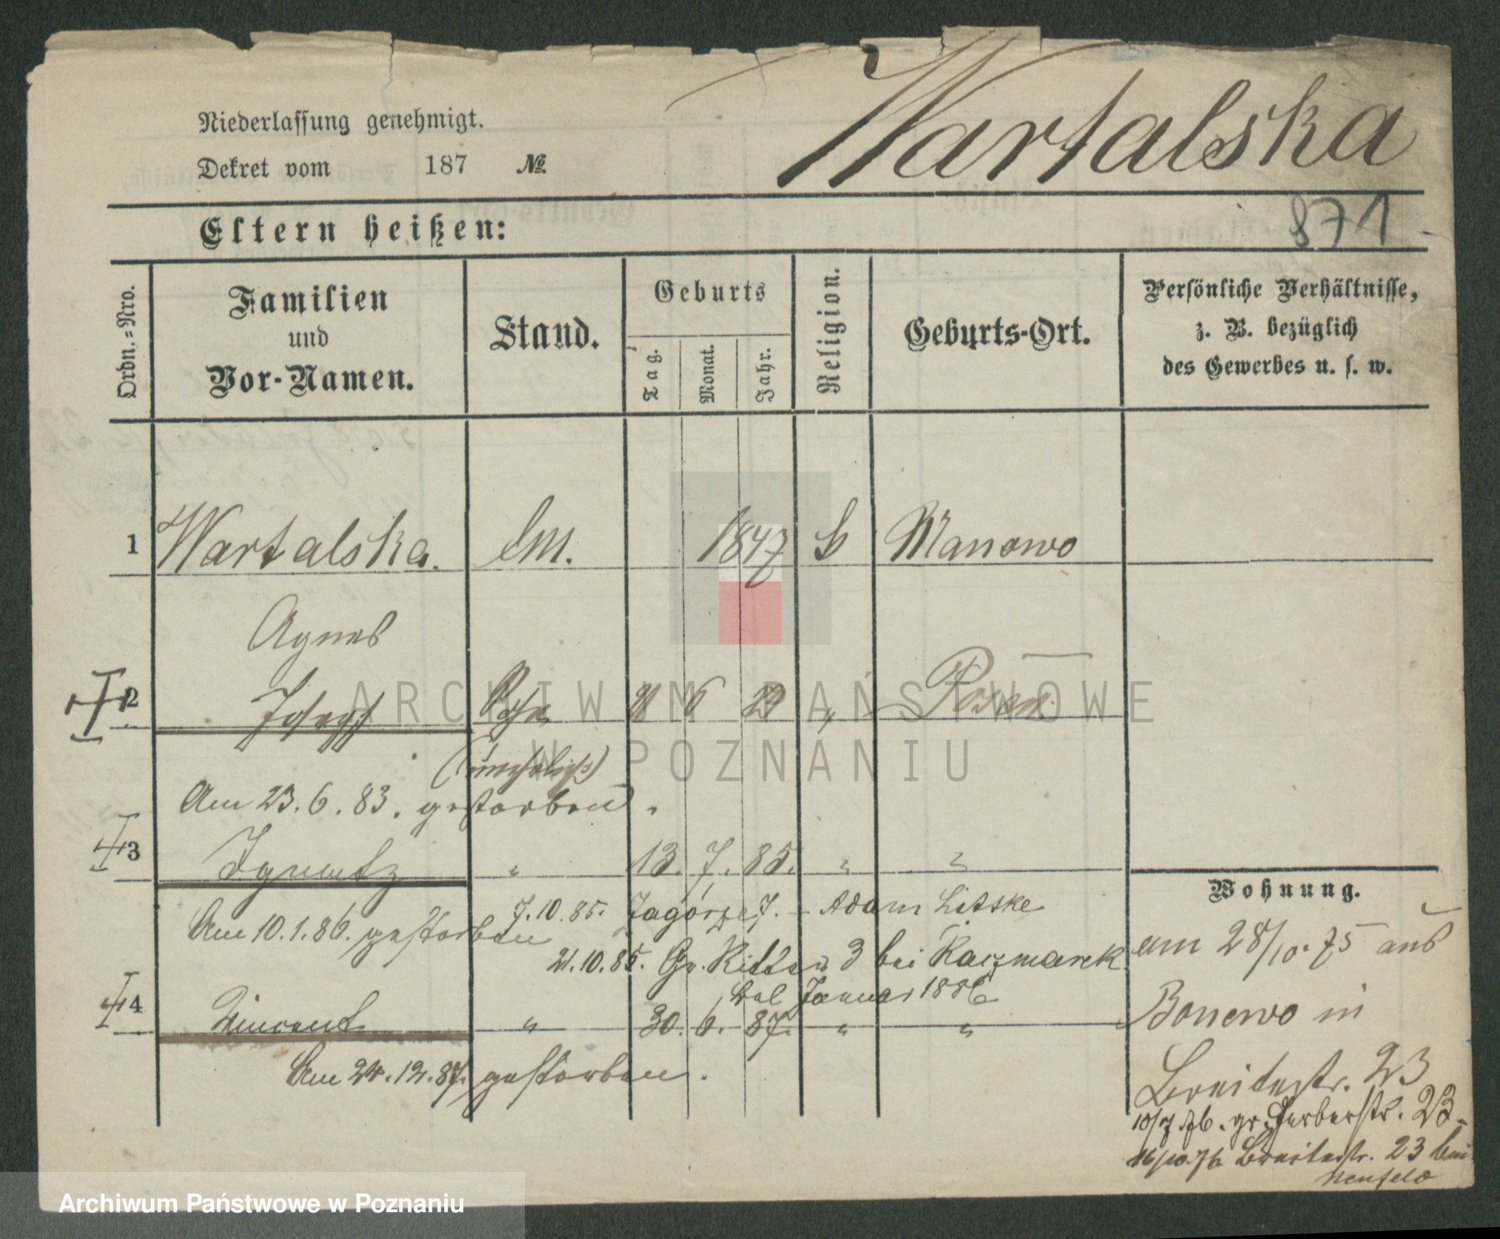 Niederlassung genehmigt.
Dekret vom 187 №
Wartalska
871
Eltern heißen:
Ordn.-Nro.
Familien
und
Vor-Namen.
Stand.
Geburts
Tag.
Monat.
Jahr.
Religion.
Geburts-Ort.
Persönliche Verhältnisse,
z. B. bezüglich
des Gewerbes u. s. w.
1 Wartalska. 1847 Manowo
Agnes
2 Joseph 6 Posen
(unehelich)
Am 23.6.83. gestorben.
3 Ignatz " 13. 7. 85. " "
Am 10.1.86. gestorben
7.10.85. Zagórze 7. - Adam Litske
21.10.85. Gr. Ritter 3 bei Kaczmarek
Januar 1886
4 Vincent " 30. 6. 87. " "
Am 24.12.87. gestorben.
Wohnung.
am 28/10.75 aus
Bonewo in
Breitestr. 23
10/7.76. gr. Gerberstr. 23.
16/10.76 Breitestr. 23 bei
Neufeld
ARCHIWUM PAŃSTWOWE
W POZNANIU
Archiwum Państwowe w Poznaniu